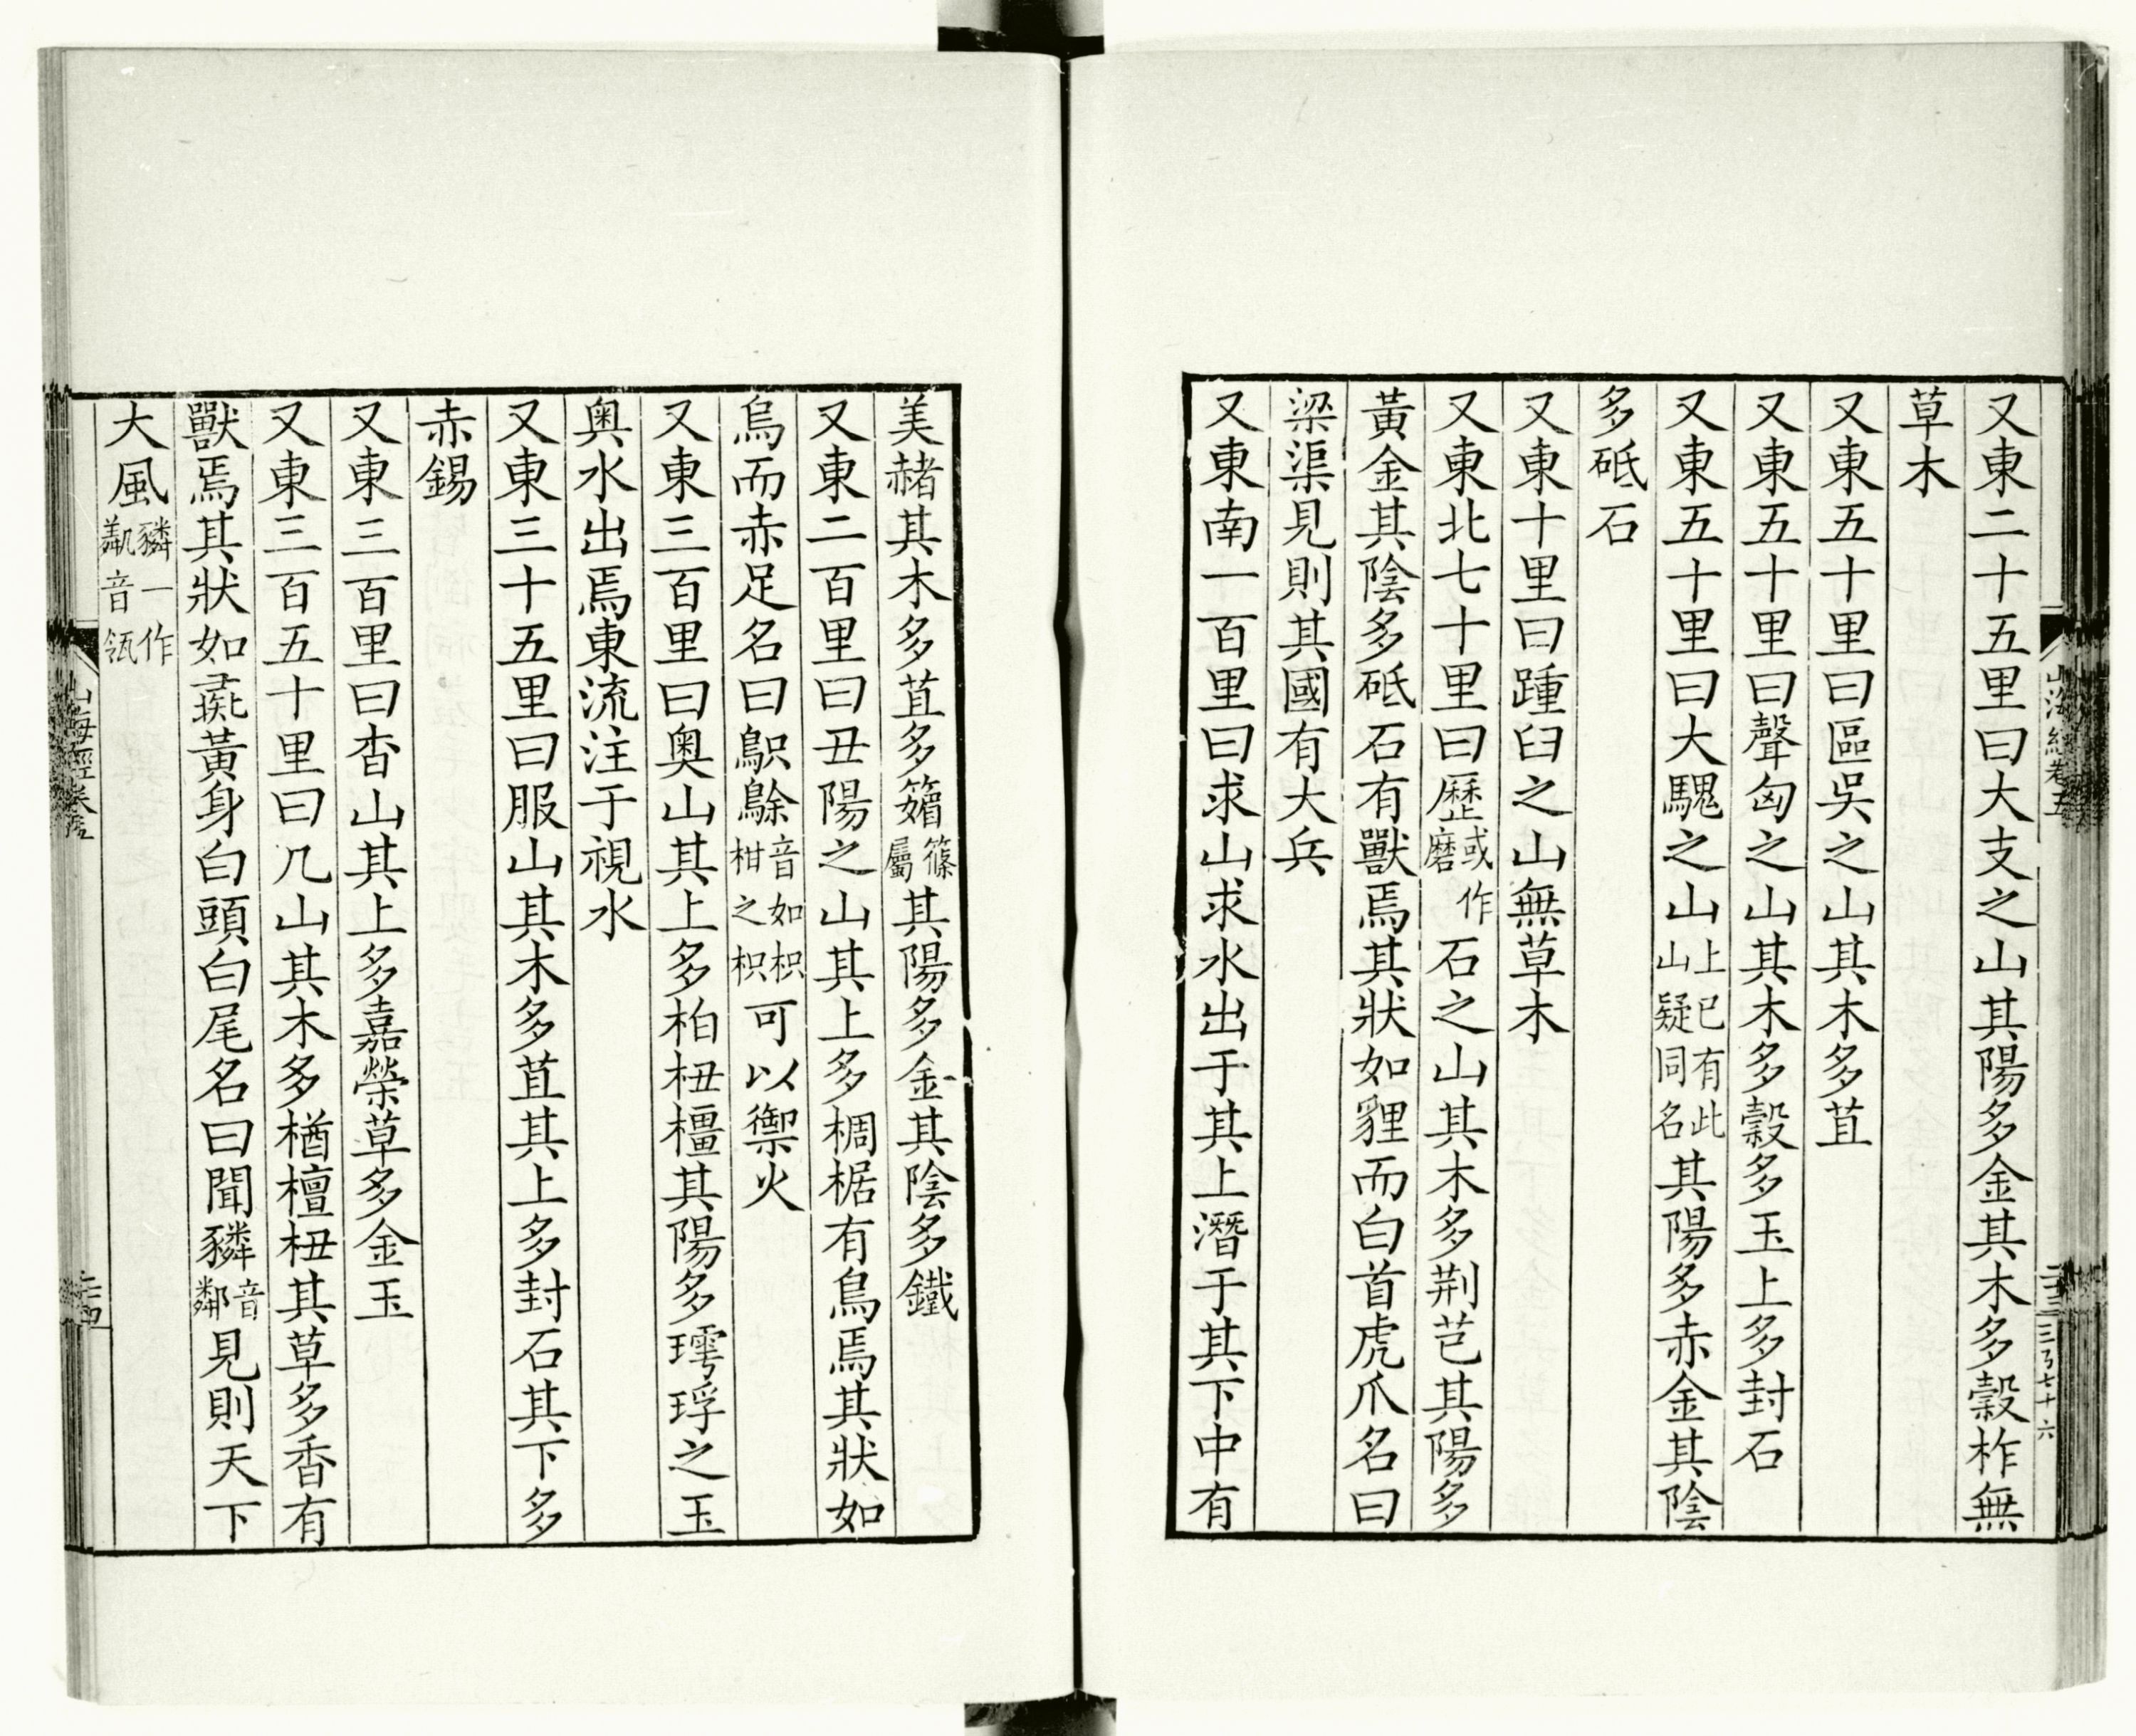 又東二十五里曰大支之山其陽多金其木多榖柞無
草木
又東五十里曰區吳之山其木多苴
又東五十里曰聲匈之山其木多榖多玉上多封石
又東五十里曰大騩之山上巳有此山疑同名其陽多赤金其陰
多砥石
又東十里曰踵臼之山無草木
又東北七十里曰歷或作磨石之山其木多荆芑其陽多
黃金其陰多砥石有獸焉其狀如貍而白首虎爪名曰
梁渠見則其國有大兵
又東南一百里曰求山求水出于其上潛于其下中有
美赭其木多苴多䉋篠屬其陽多金其陰多鐵
又東二百里曰丑陽之山其上多椆椐有鳥焉其狀如
烏而赤足名曰䳅鵌音如枳柑之枳可以禦火
又東三百里曰奥山其上多柏杻橿其陽多㻬琈之玉
奥水出焉東流注于視水
又東三十五里曰服山其木多苴其上多封石其下多
赤錫
又東三百里曰杳山其上多嘉榮草多金玉
又東三百五十里曰凢山其木多楢檀杻其草多香有
獸焉其狀如彘黃身白頭白尾名曰聞豨音鄰見則天下
大風
山海經卷五